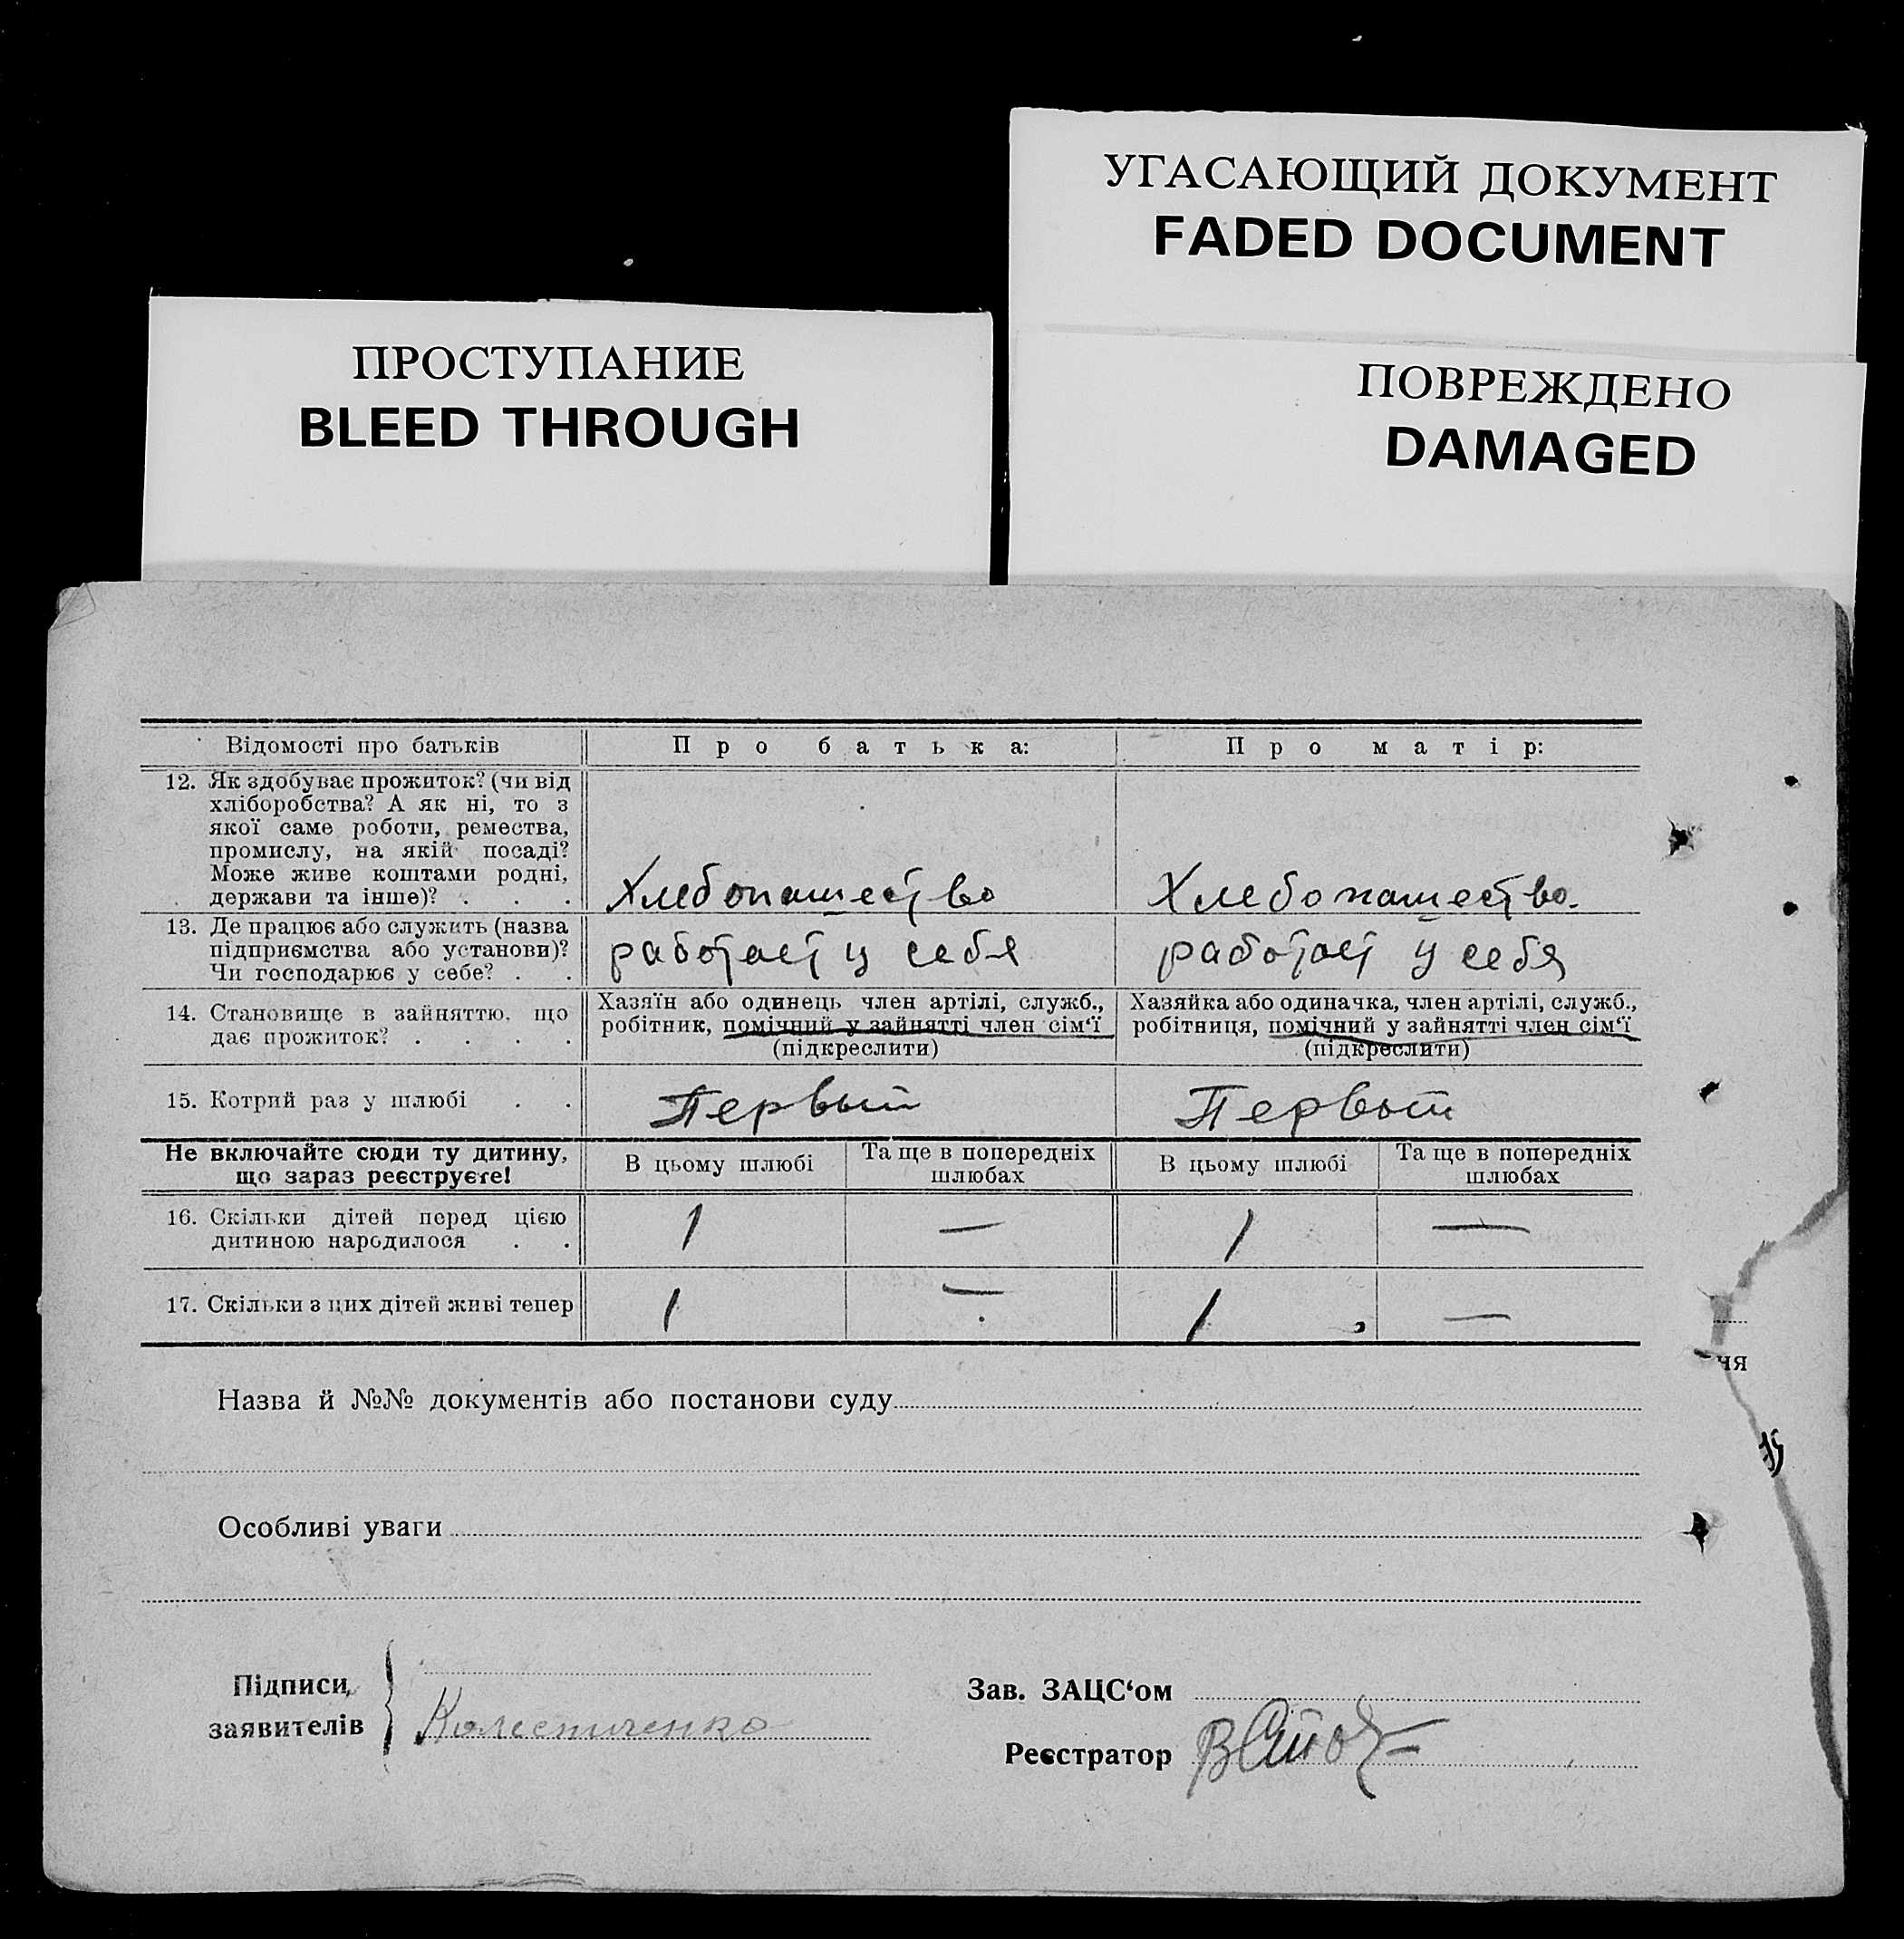 УГАСАЮЩИЙ ДОКУМЕНТ
FADED DOCUMENT
ПРОСТУПАНИЕ
BLEED THROUGH
ПОВРЕЖДЕНО
DAMAGED
Відомості про батьків
Про батька:
Про матір:
12. Як здобуває прожиток? (чи від
хліборобства? А як ні, то з
якої саме роботи, ремества,
промислу, на якій посаді?
Може живе коштами родні,
держави та інше)? . . .
Хлебопашество
Хлебопашество.
13. Де працює або служить (назва
підприємства або установи)?
Чи господарює у себе? . .
работает у себя
работает у себя
14. Становище в зайняттю, що
дає прожиток? . . . .
Хазяїн або одинець член артілі, служб.,
робітник, помічний у зайнятті член сім‘ї
(підкреслити)
Хазяйка або одиначка, член артілі, служб.,
робітниця, помічний у зайнятті член сім‘ї
(підкреслити)
15. Котрий раз у шлюбі . .
Первый
Первый
Не включайте сюди ту дитину,
що зараз реєструєте!
В цьому шлюбі
Та ще в попередніх
шлюбах
В цьому шлюбі
Та ще в попередніх
шлюбах
16. Скільки дітей перед цією
дитиною народилося . .
1
—
1
—
17. Скільки з цих дітей живі тепер
1
—
1
—
чя
Назва й №№ документів або постанови суду
Особливі уваги
Підписи
заявителів
Колесниченко
Зав. ЗАЦС‘ом
Реєстратор